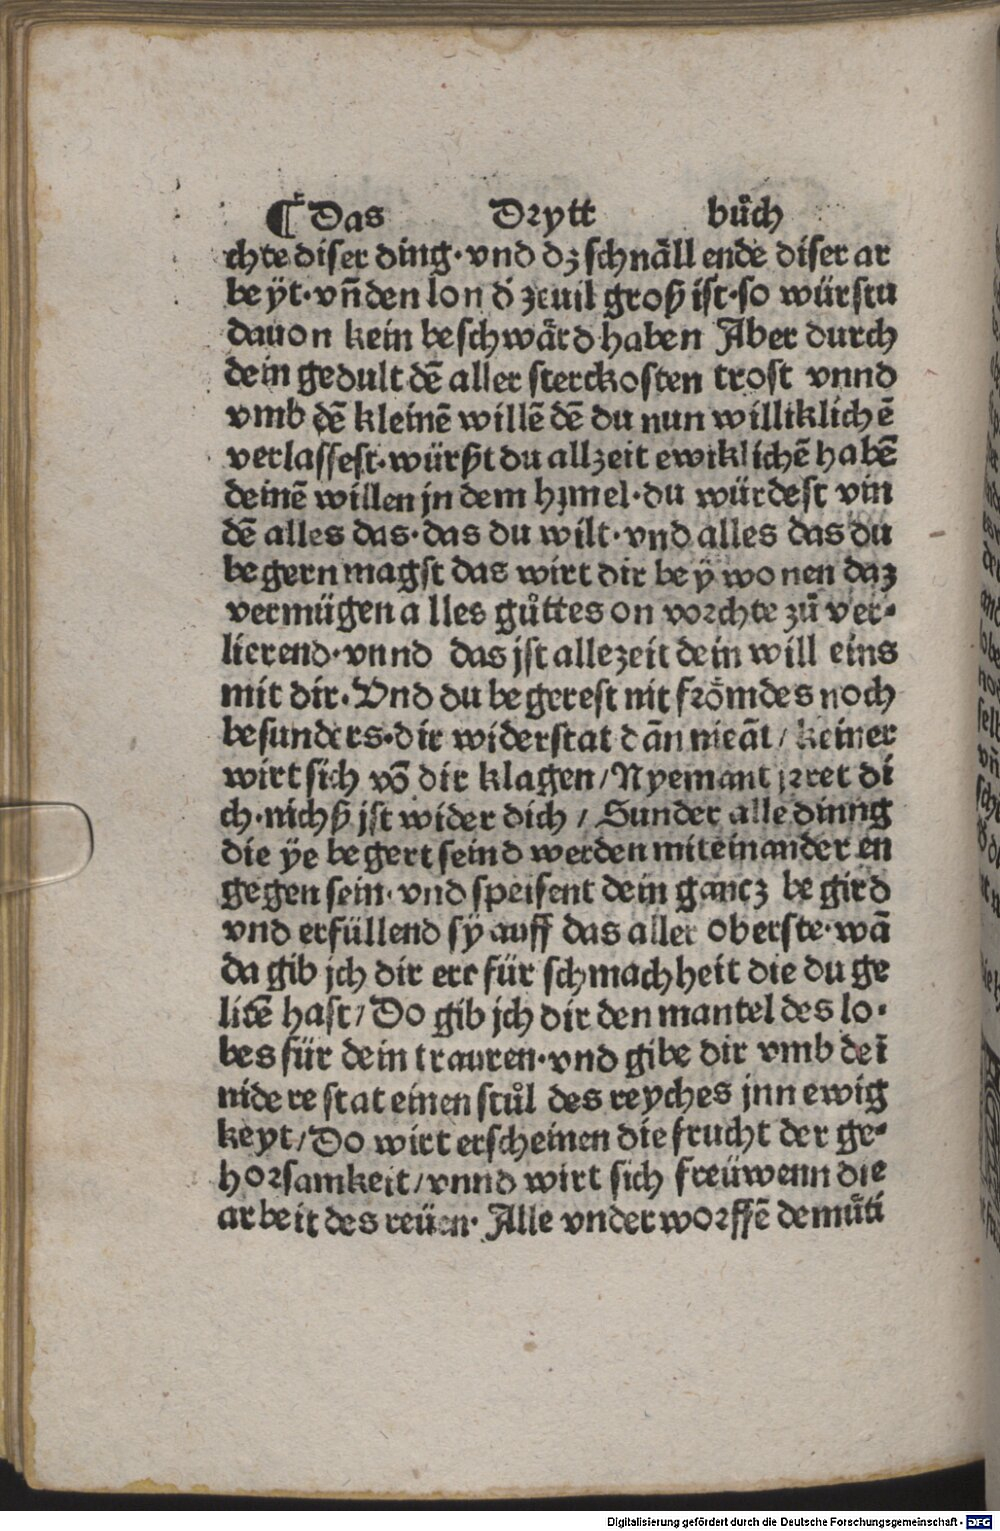 ¶ Das Drytt bůch
chte diser ding·vnd dz schnåll ende diser ar
beÿt·vn̄ den lon d̕ zeuil groß ist·so würstu
dauon kein beschwård haben Aber durch
dein gedult dē aller sterckosten trost vnnd
vmb dē kleinē willē dē du nun williklichē
verlassest·würßt du allzeit ewiklichē habē
deinē willen jn dem hymel·du würdest vin
dē alles das·das du wilt·vnd alles das du
begern magst das wirt dir beÿ wonen daz
vermügen alles gůttes on vorchte zů ver⸗
lierend·vnnd das jst allezeit dein will eins
mit dir·Vnd du begerest nit frömdes noch
besunders·dir widerstat dān nieāt/keiner
wirt sich vō dir klagen/Nyemant jrret di
ch·nichß jst wider dich/Sunder alle dinng
die ÿe begert seind werden miteinander en
gegen sein·vnd speisent dein gancz begird
vnd erfüllend sÿ auff das aller oberste·wā
da gib jch dir ere für schmachheit die du ge
litē hast/Do gib jch dir den mantel des lo⸗
bes für dein trauren·vnd gibe dir vmb deī
nidere stat einen stůl des reyches jnn ewig
keyt/Do wirt erscheinen die frucht der ge⸗
horsamkeit/vnnd wirt sich freüwenn die
arbeit des reüen·Alle vnderworffē demůti
Digitalisierung gefördert durch die Deutsche Forschungsgemeinschaft - DFG